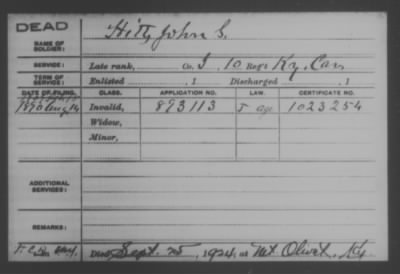 DEAD
NAME OF SOLDIER:
Hitt, John S.
SERVICE:
Late rank, Co. I, 10 Reg't Ky. Cav.
TERM OF SERVICE:
Enlisted , 1 Discharged , 1
DATE OF FILING. CLASS. APPLICATION NO. LAW. CERTIFICATE NO.
1890 Aug 14 Invalid, 893113 1023254
Widow,
Minor,
ADDITIONAL SERVICES:
REMARKS:
Died Sept. 25, 1924, at Mt. Olivet, Ky.